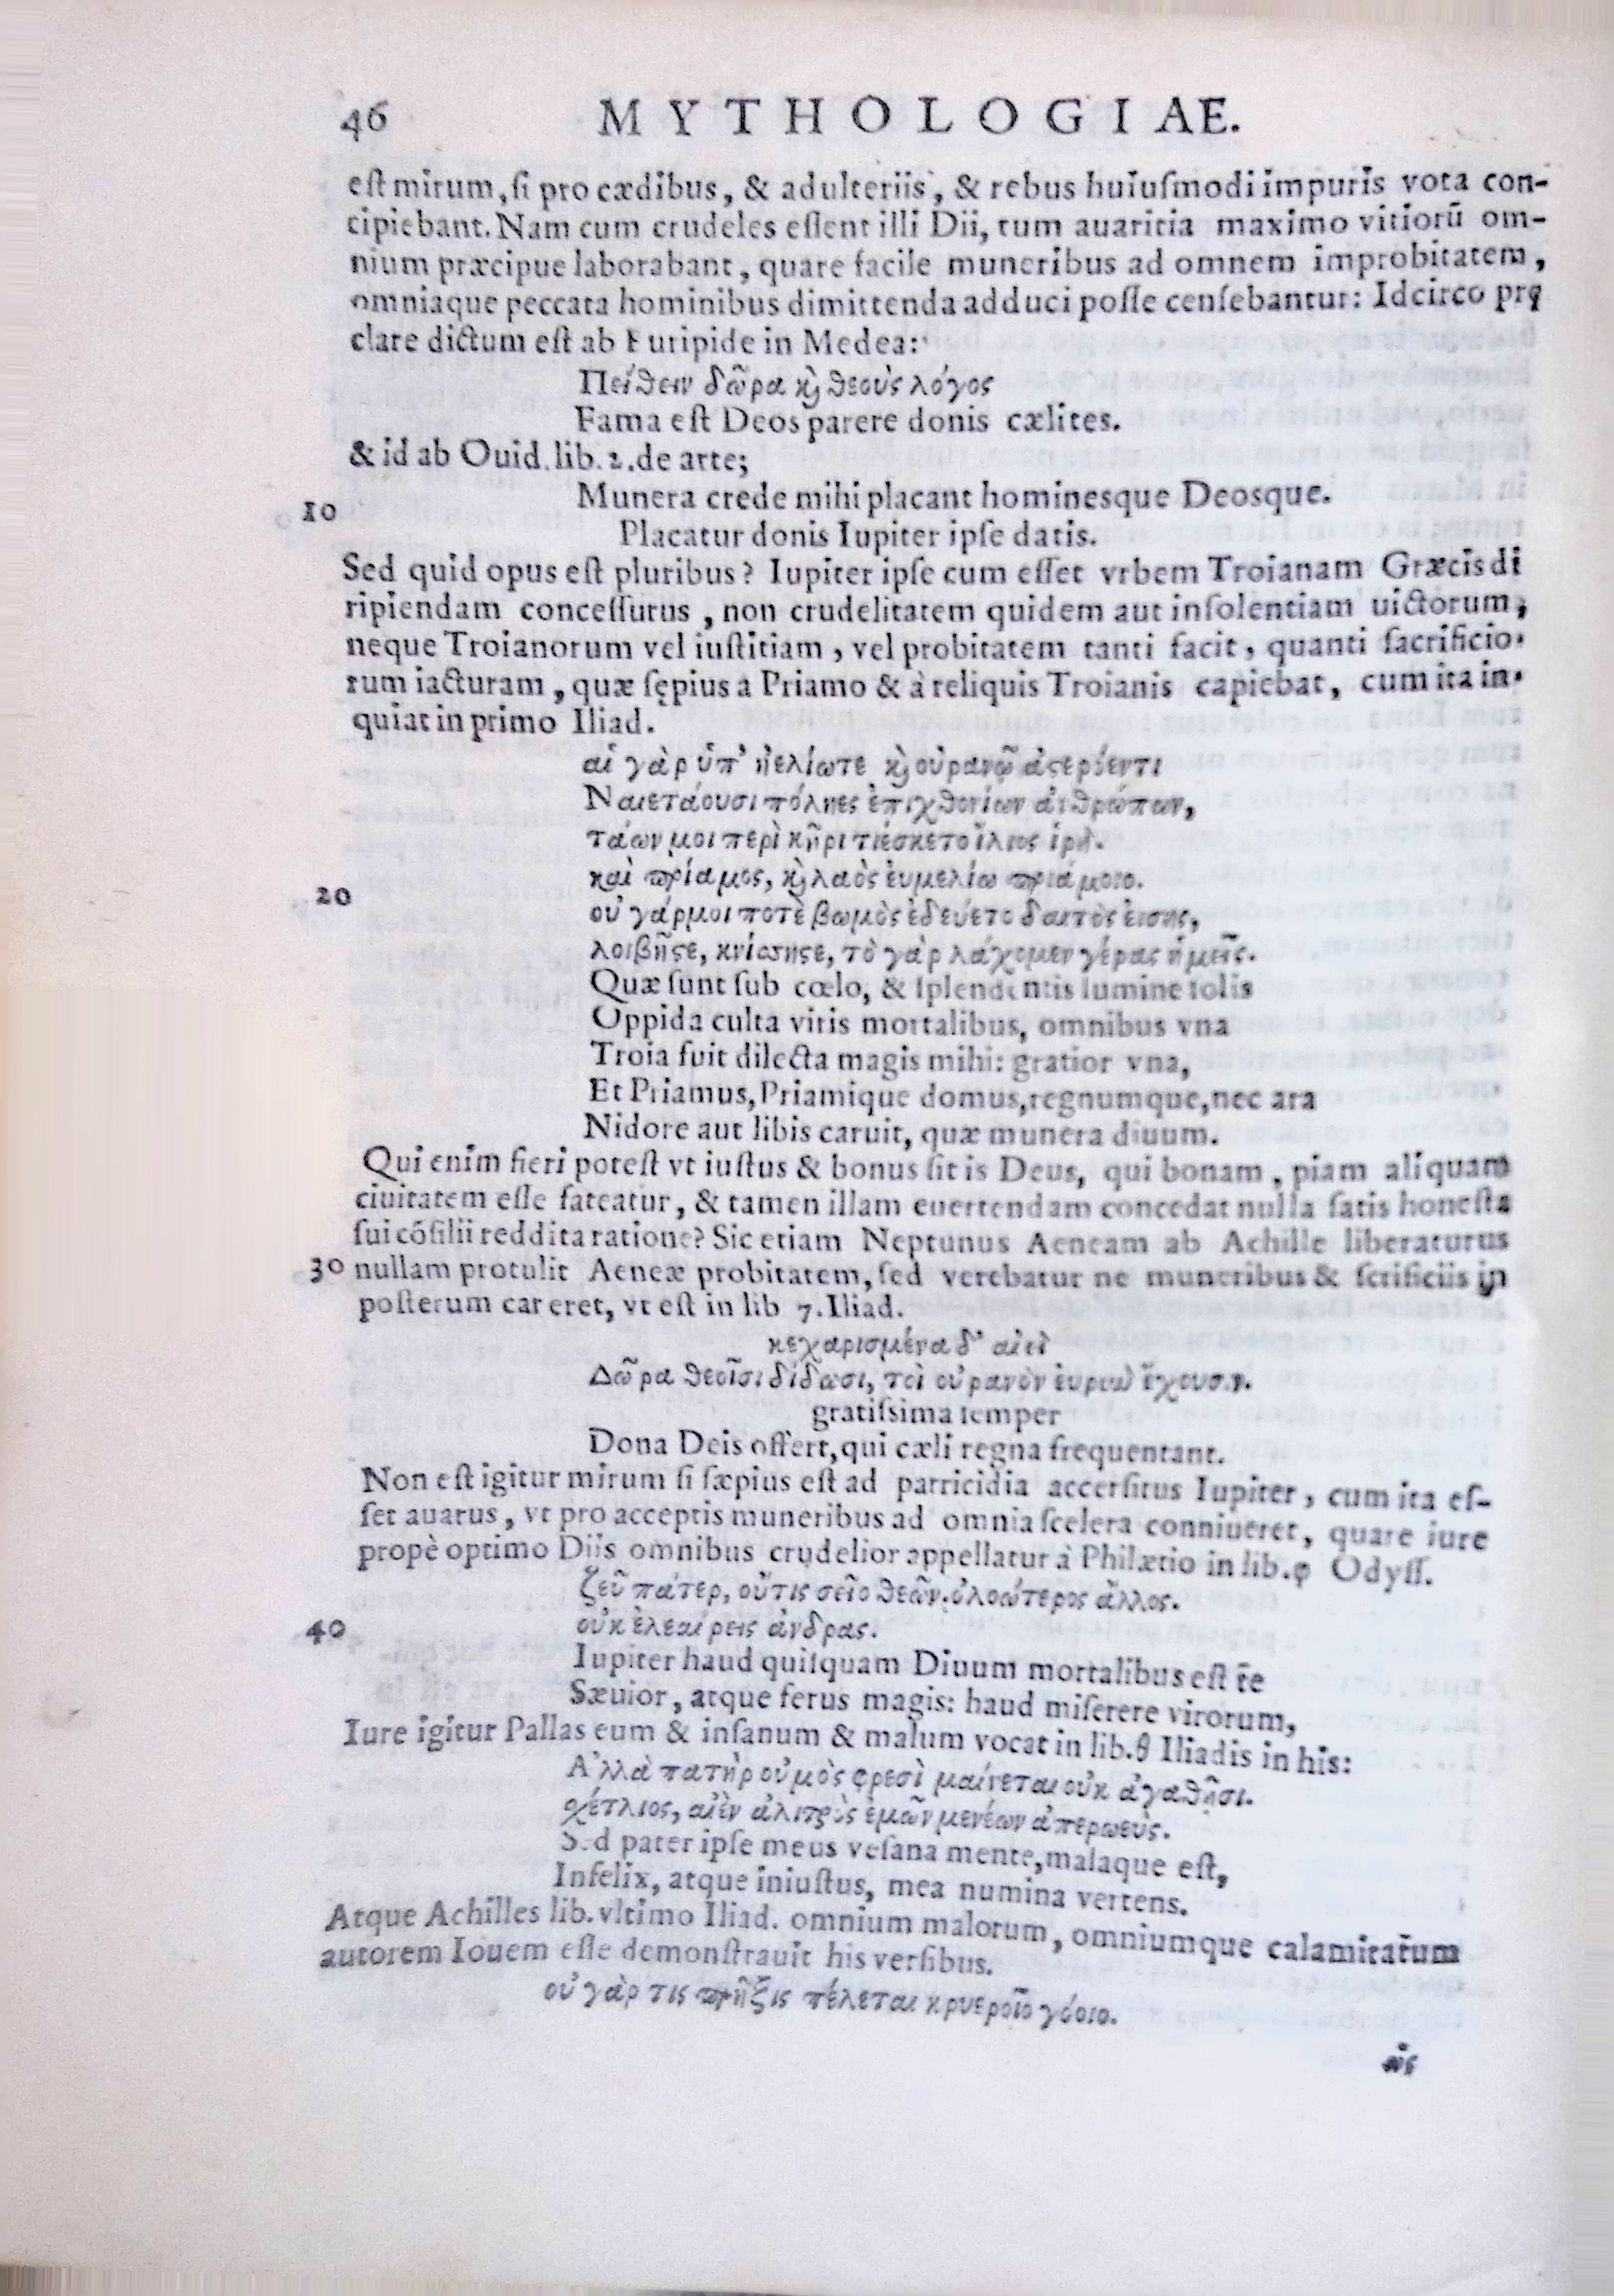 46 MYTHOLOGIAE.
est mirum, si pro cædibus, & adulteriis, & rebus huiusmodi impuris vota con-
cipiebant. Nam cum crudeles essent illi Dii, tum auaritia maximo vitiorũ om-
nium præcipue laborabant, quare facile muneribus ad omnem improbitatem,
omniaque peccata hominibus dimittenda adduci posse censebantur: Idcirco prę
clare dictum est ab Euripide in Medea:
Πείθειν δῶρα ϗ θεοὺς λόγος
Fama est Deos parere donis cælites.
& id ab Ouid. lib. 2. de arte;
Munera crede mihi placant hominesque Deosque.
10
Placatur donis Iupiter ipse datis.
Sed quid opus est pluribus? Iupiter ipse cum esset vrbem Troianam Græcis di
ripiendam concessurus, non crudelitatem quidem aut insolentiam uictorum,
neque Troianorum vel iustitiam, vel probitatem tanti facit, quanti sacrificio-
rum iacturam, quæ sępius a Priamo & à reliquis Troianis capiebat, cum ita in-
quiat in primo Iliad.
αἳ γὰρ ὑπ' ἠελίωτε ϗ οὐρανῷ ἀςερόεντι
Ναιετάουσι πόληες ἐπιχθονίων ἀνθρώπων,
τάων μοι περὶ κῆρι τιέσκετο ἴλιος ἱρή.
20 καὶ πρίαμος, ϗ λαὸς ἐυμελίω πριάμοιο.
οὐ γάρ μοι ποτὲ βωμὸς ἐδεύετο δαιτὸς ἐισης,
λοιβῆςε, κνίσσηςε, τὸ γὰρ λάχομεν γέρας ἡμεῖς.
Quæ sunt sub cœlo, & splendentis lumine solis
Oppida culta viris mortalibus, omnibus vna
Troia fuit dilecta magis mihi: gratior vna,
Et Priamus, Priamique domus, regnumque, nec ara
Nidore aut libis caruit, quæ munera diuum.
Qui enim fieri potest vt iustus & bonus sit is Deus, qui bonam, piam aliquam
ciuitatem esse fateatur, & tamen illam euertendam concedat nulla satis honesta
sui cōsilii reddita ratione? Sic etiam Neptunus Aeneam ab Achille liberaturus
30 nullam protulit Aeneæ probitatem, sed verebatur ne muneribus & scrificiis in
posterum careret, vt est in lib 7. Iliad.
κεχαρισμένα δ' αἰεὶ
Δῶρα θεοῖσι δίδωσι, τοὶ οὐρανὸν ἐυρὺν ἔχουσιν.
gratissima semper
Dona Deis offert, qui cæli regna frequentant.
Non est igitur mirum si sæpius est ad parricidia accersitus Iupiter, cum ita es-
set auarus, vt pro acceptis muneribus ad omnia scelera conniueret, quare iure
propè optimo Diis omnibus crudelior appellatur à Philætio in lib. φ Odyss.
ζεῦ πάτερ, οὔτις σεῖο θεῶν ὀλοώτερος ἄλλος.
40 οὐκ ἐλεαίρεις ἀνδρας.
Iupiter haud quisquam Diuum mortalibus est te
Sæuior, atque ferus magis: haud miserere virorum,
Iure igitur Pallas eum & insanum & malum vocat in lib. θ Iliadis in his:
Α'λλὰ πατὴρ οὑμὸς φρεσὶ μαίνεται οὐκ ἀγαθῇσι.
σχέτλιος, αἰὲν ἀλιτρὸς ἐμῶν μενέων ἀπερωεὺς.
Sed pater ipse meus vesana mente, malaque est,
Infelix, atque iniustus, mea numina vertens.
Atque Achilles lib. vltimo Iliad. omnium malorum, omniumque calamitatum
autorem Iouem esse demonstrauit his versibus.
οὐ γὰρ τις πρῆξις πέλεται κρυεροῖο γόοιο.
ὡς